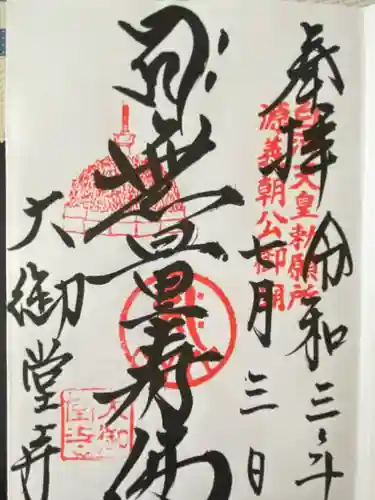 奉拝
令和三年
七月三日
白河天皇勅願所
源義朝公御廟
無量寿佛
大御堂寺
大御堂寺